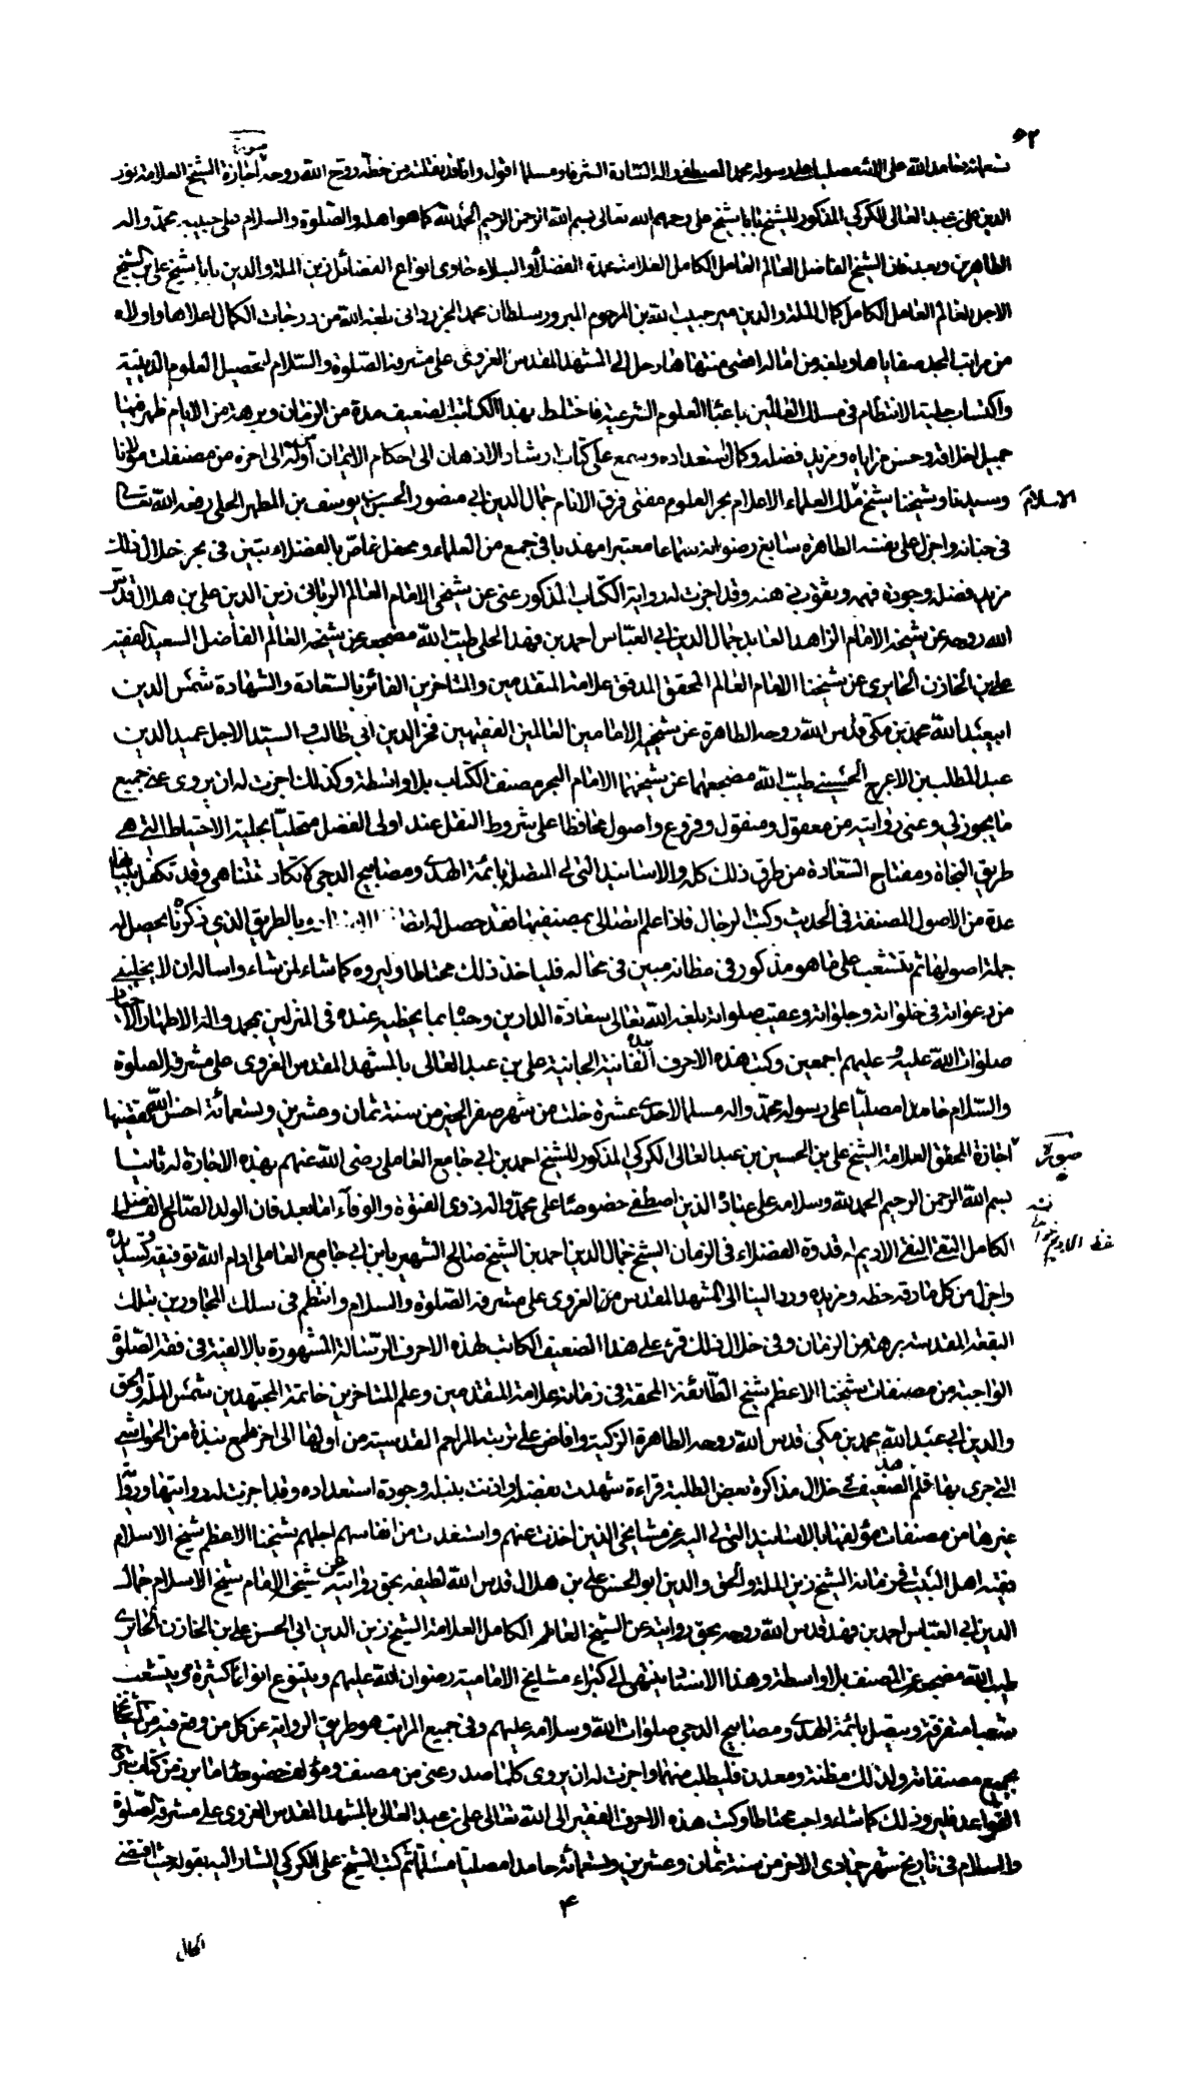 ۵۲
صورة
تسعمائة حامدا لله على آلائه مصليا على رسوله محمد المصطفى واله السادة الشرفاء ومسلما اقول وانا قد نقلته من خطه روح الله روحه اجازة الشيخ العلامة نور
الدين علي بن عبد العالي الكركي المذكور للشيخ بابا شيخ علي رحمهم الله تعالى بسم الله الرحمن الرحيم الحمد لله كما هو اهله والصلوة والسلام على حبيبه محمد واله
الطاهرين وبعد فان الشيخ الفاضل العالم العامل الكامل العلامة عمدة الفضلاء والنبلاء حاوى انواع الفضائل زين الملة والدين بابا شيخ علي بن الشيخ
الاجل العالم العامل الكامل كمال الملة والدين مير حبيب الله بن المرحوم المبرور سلطان محمد الجزردانى بلغه الله من درجات الكمال اعلاها واولاه
من مراتب المجد صفاياها وبلغه من اماله اقصى منتهاها رحل الى المشهد المقدس الغروى على مشرفه الصلوة والسلام لتحصيل العلوم الدينية
واكتساب حلية الانتظام في مسلك العالمين باعباء العلوم الشرعية فاختلط بهذا الكاتب الضعيف مدة من الزمان وبرهة من الايام ظهر فيها
جميل اخلاقه وحسن مزاياه ومزيد فضله وكمال استعداده وسمع علي كتاب ارشاد الاذهان الى احكام الايمان من اوله الى اخره من مصنفات مولانا
وسيدنا وشيخنا شيخ الاسلام ملك العلماء الاعلام بحر العلوم مفتى فرق الانام جمال الدين ابي منصور الحسن بن يوسف بن المطهر الحلي رفعه الله تعالى
في جنانه واجزل على نفسه الطاهرة سابغ رضوانه سماعا معتبرا مهذبا في جمع من العلماء ومحفل غاص بالفضلاء يتبين في بحر خلال ذلك
مزيد فضله وجودة فهمه وثقوب ذهنه وقد اجزت له رواية الكتاب المذكور عنى عن شيخى الامام العالم الرباني زين الدين علي بن هلال قدس
الله روحه عن شيخه الامام الزاهد العابد جمال الدين ابي العباس احمد بن فهد الحلي طيب الله مضجعه عن شيخه العالم الفاضل السعيد الفقيه
علي بن الخازن الحايرى عن شيخنا الامام العالم المحقق المدقق علامة المتقدمين والمتاخرين الفائز بالسعادة والشهادة شمس الدين
ابي عبد الله محمد بن مكي قدس الله روحه الطاهرة عن شيخيه الامامين العالمين الفقيهين فخر الدين ابي طالب والسيد الاجل عميد الدين
عبد المطلب بن الاعرج الحسيني طيب الله مضجعهما عن شيخهما الامام البحر مصنف الكتاب بلا واسطة وكذلك اجزت له ان يروى عني جميع
ما يجوز لي وعني روايته من معقول ومنقول وفروع واصول محافظا على شروط النقل عند اولى الفضل متحليا بحلية الاحتياط التي هي
طريق النجاة ومفتاح السعادة من طرق ذلك كله والاسانيد التي لي المتصل بائمة الهدى ومصابيح الدجى لا تكاد تتناهى وقد تكفل ببيانها
عدة من الاصول المصنفة في الحديث وكتب الرجال فاذا علم اتصالي بمصنفيها فقد حصل له بالطريق الذي ذكرناه يحصل له
جملة اصولها ثم يتشعب على ما هو مذكور في مظانه مبين في محاله فلياخذ ذلك محتاطا وليروه كما شاء لمن شاء واساله ان لا يخليني
من دعواته في خلواته وجلواته وعقيب صلواته بلغه الله تعالى سعادة الدارين وحباه بما يحظيه عنده في المنزلين بمحمد واله الاطهار
صلوات الله عليه وعليهم اجمعين وكتب هذه الاحرف بيده الفانية الجانية علي بن عبد العالي بالمشهد المقدس الغروى على مشرفه الصلوة
والسلام حامدا مصليا على رسوله محمد واله مسلما لاحدى عشرة خلت من شهر صفر الخير من سنة ثمان وعشرين وتسعمائة احسن الله تقضيها
صورة
اجازة المحقق العلامة الشيخ علي بن الحسين بن عبد العالي الكركي المذكور للشيخ احمد بن ابي جامع العاملي رضى الله عنهم بهذه الاجازة له ثانيا
بسم الله الرحمن الرحيم الحمد لله وسلامه على عباده الذين اصطفى خصوصا على محمد واله ذوى الفتوة والوفاء اما بعد فان الولد الصالح الفاضل
الكامل التقي النقي الاديم قدوة الفضلاء في الزمان الشيخ جمال الدين احمد بن الشيخ صالح الشهير بابن ابي جامع العاملي ادام الله توفيقه وتسديده
واجزل من كل عارفة حظه ومزيده ورد الينا الى المشهد المقدس الغروى على مشرفه الصلوة والسلام وانتظم في سلك المجاورين بتلك
البقعة المقدسة برهة من الزمان وفي خلال ذلك قرء على هذا الضعيف الكاتب لهذه الاحرف الرسالة المشهورة بالالفية في فقه الصلوة
الواجبة من مصنفات شيخنا الاعظم شيخ الطائفة المحقة في زمانه علامة المتقدمين وعلم المتاخرين خاتمة المجتهدين شمس الملة والحق
والدين ابي عبد الله محمد بن مكي قدس الله روحه الطاهرة الزكية وافاض على تربته المراحم القدسية من اولها الى اخرها مع نبذة من الحواشي
التي جرى بها قلم الضعيف في خلال مذاكرة بعض الطلبة قراءة شهدت بفضله واذنت بنبله وجودة استعداده وقد اجزت له روايتها ورواية
غيرها من مصنفات مؤلفها بالاسانيد التي لي اليه عن مشايخي الذين اخذت عنهم واستفدت من انفاسهم اجلهم شيخنا الاعظم شيخ الاسلام
فقيه اهل البيت في زمانه الشيخ زين الملة والحق والدين ابو الحسن علي بن هلال قدس الله لطيفه بحق روايته عن شيخى الامام شيخ الاسلام جمال
الدين ابي العباس احمد بن فهد قدس الله روحه بحق روايته عن الشيخ الفاضل الكامل العلامة الشيخ زين الدين ابي الحسن علي بن الخازن الحايرى
طيب الله مضجعه عن المصنف بلا واسطة وهذا الاسناد ينتهى الى كبراء مشايخ الامامية رضوان الله عليهم ويتنوع انواعا كثيرة ويتشعب
شعبا متفرقة ويتصل بائمة الهدى ومصابيح الدجى صلوات الله وسلامه عليهم وفي جميع المراتب هو طريق الرواية عن كل من وقع فيه من
بجميع مصنفاته ولذلك مظنة ومعدن فليطلب منهما واجزت له ان يروى كلما صدر عني من مصنف ومؤلف خصوصا ما برز من كتاب شرح
القواعد فليرو ذلك كما شاء واحب محتاطا وكتب هذه الاحرف الفقير الى الله تعالى علي بن عبد العالي بالمشهد المقدس الغروى على مشرفه الصلوة
والسلام في تاريخ شهر جمادى الاخر من سنة ثمان وعشرين وتسعمائة حامدا مصليا مسلما ثم كتب الشيخ علي الكركي المشار اليه بقوله حيث اقتضى
۴
الحال